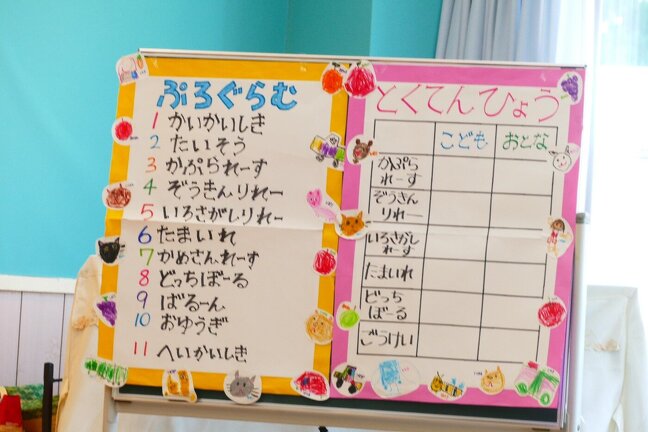 ぷろぐらむ
1 かいかいしき
2 たいそう
3 かぷられーす
4 ぞうきんりれー
5 いろさがしりれー
6 たまいれ
7 かめさんれーす
8 どっちぼーる
9 ばるーん
10 おゆうぎ
11 へいかいしき
とくてんひょう
こども おとな
かぷら
れーす
ぞうきん
りれー
いろさがし
りれー
たまいれ
どっち
ぼーる
ごうけい